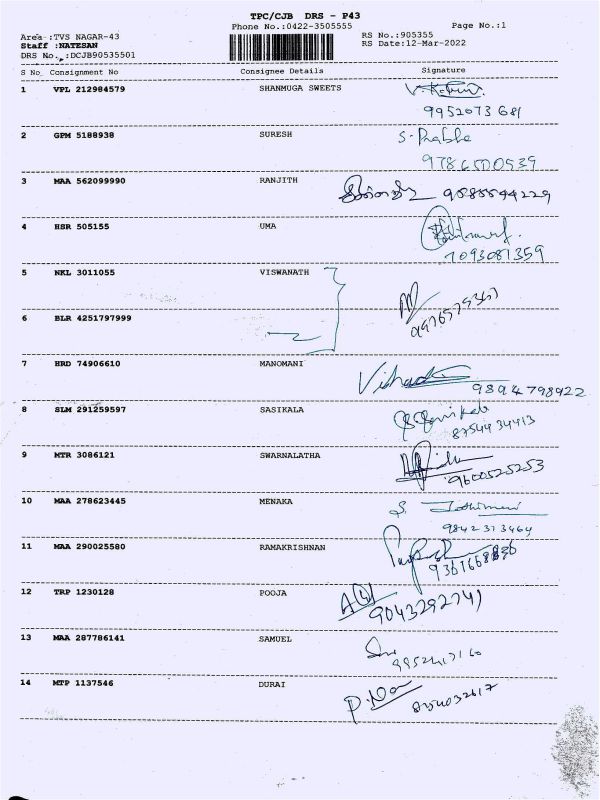 TPC/CJB DRS - P43
Phone No.:0422-3505555
Page No.:1
Area :TVS NAGAR-43
RS No.:905355
Staff :NATESAN
RS Date:12-Mar-2022
DRS No. :DCJB90535501
S No Consignment No Consignee Details Signature
1 VPL 212984579 SHANMUGA SWEETS
9952073681
2 GPM 5188938 SURESH S. Prabha
9786500539
3 MAA 562099990 RANJITH 9585594229
4 HSR 505155 UMA
7093081359
5 NKL 3011055 VISWANATH
6 BLR 4251797999
7 HRD 74906610 MANOMANI
9894798922
8 SLM 291259597 SASIKALA
8754434413
9 MTR 3086121 SWARNALATHA
9600525253
10 MAA 278623445 MENAKA S.
9842373464
11 MAA 290025580 RAMAKRISHNAN
12 TRP 1230128 POOJA
9043292741
13 MAA 287786141 SAMUEL
14 MTP 1137546 DURAI